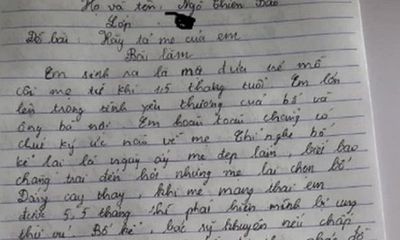 Họ và tên: Ngô Thiên Bảo
Lớp
Đề bài: Hãy tả mẹ của em
Bài làm
Em sinh ra là một đứa trẻ mồ
côi mẹ từ khi 1,5 tháng tuổi. Em lớn
lên trong tình yêu thương của bố và
ông bà nội. Em hoàn toàn chưng có
chút ký ức nào về mẹ. Chỉ nghe bố
kể lại là ngày ấy mẹ đẹp lắm, biết bao
chàng trai đến hỏi nhưng mẹ lại chọn bố
Đắng cay thay, khi mẹ mang thai em
được 5,5 tháng thì phát hiện mình bị ung
thư vú. Bố kể, bác sỹ khuyên nếu chấp